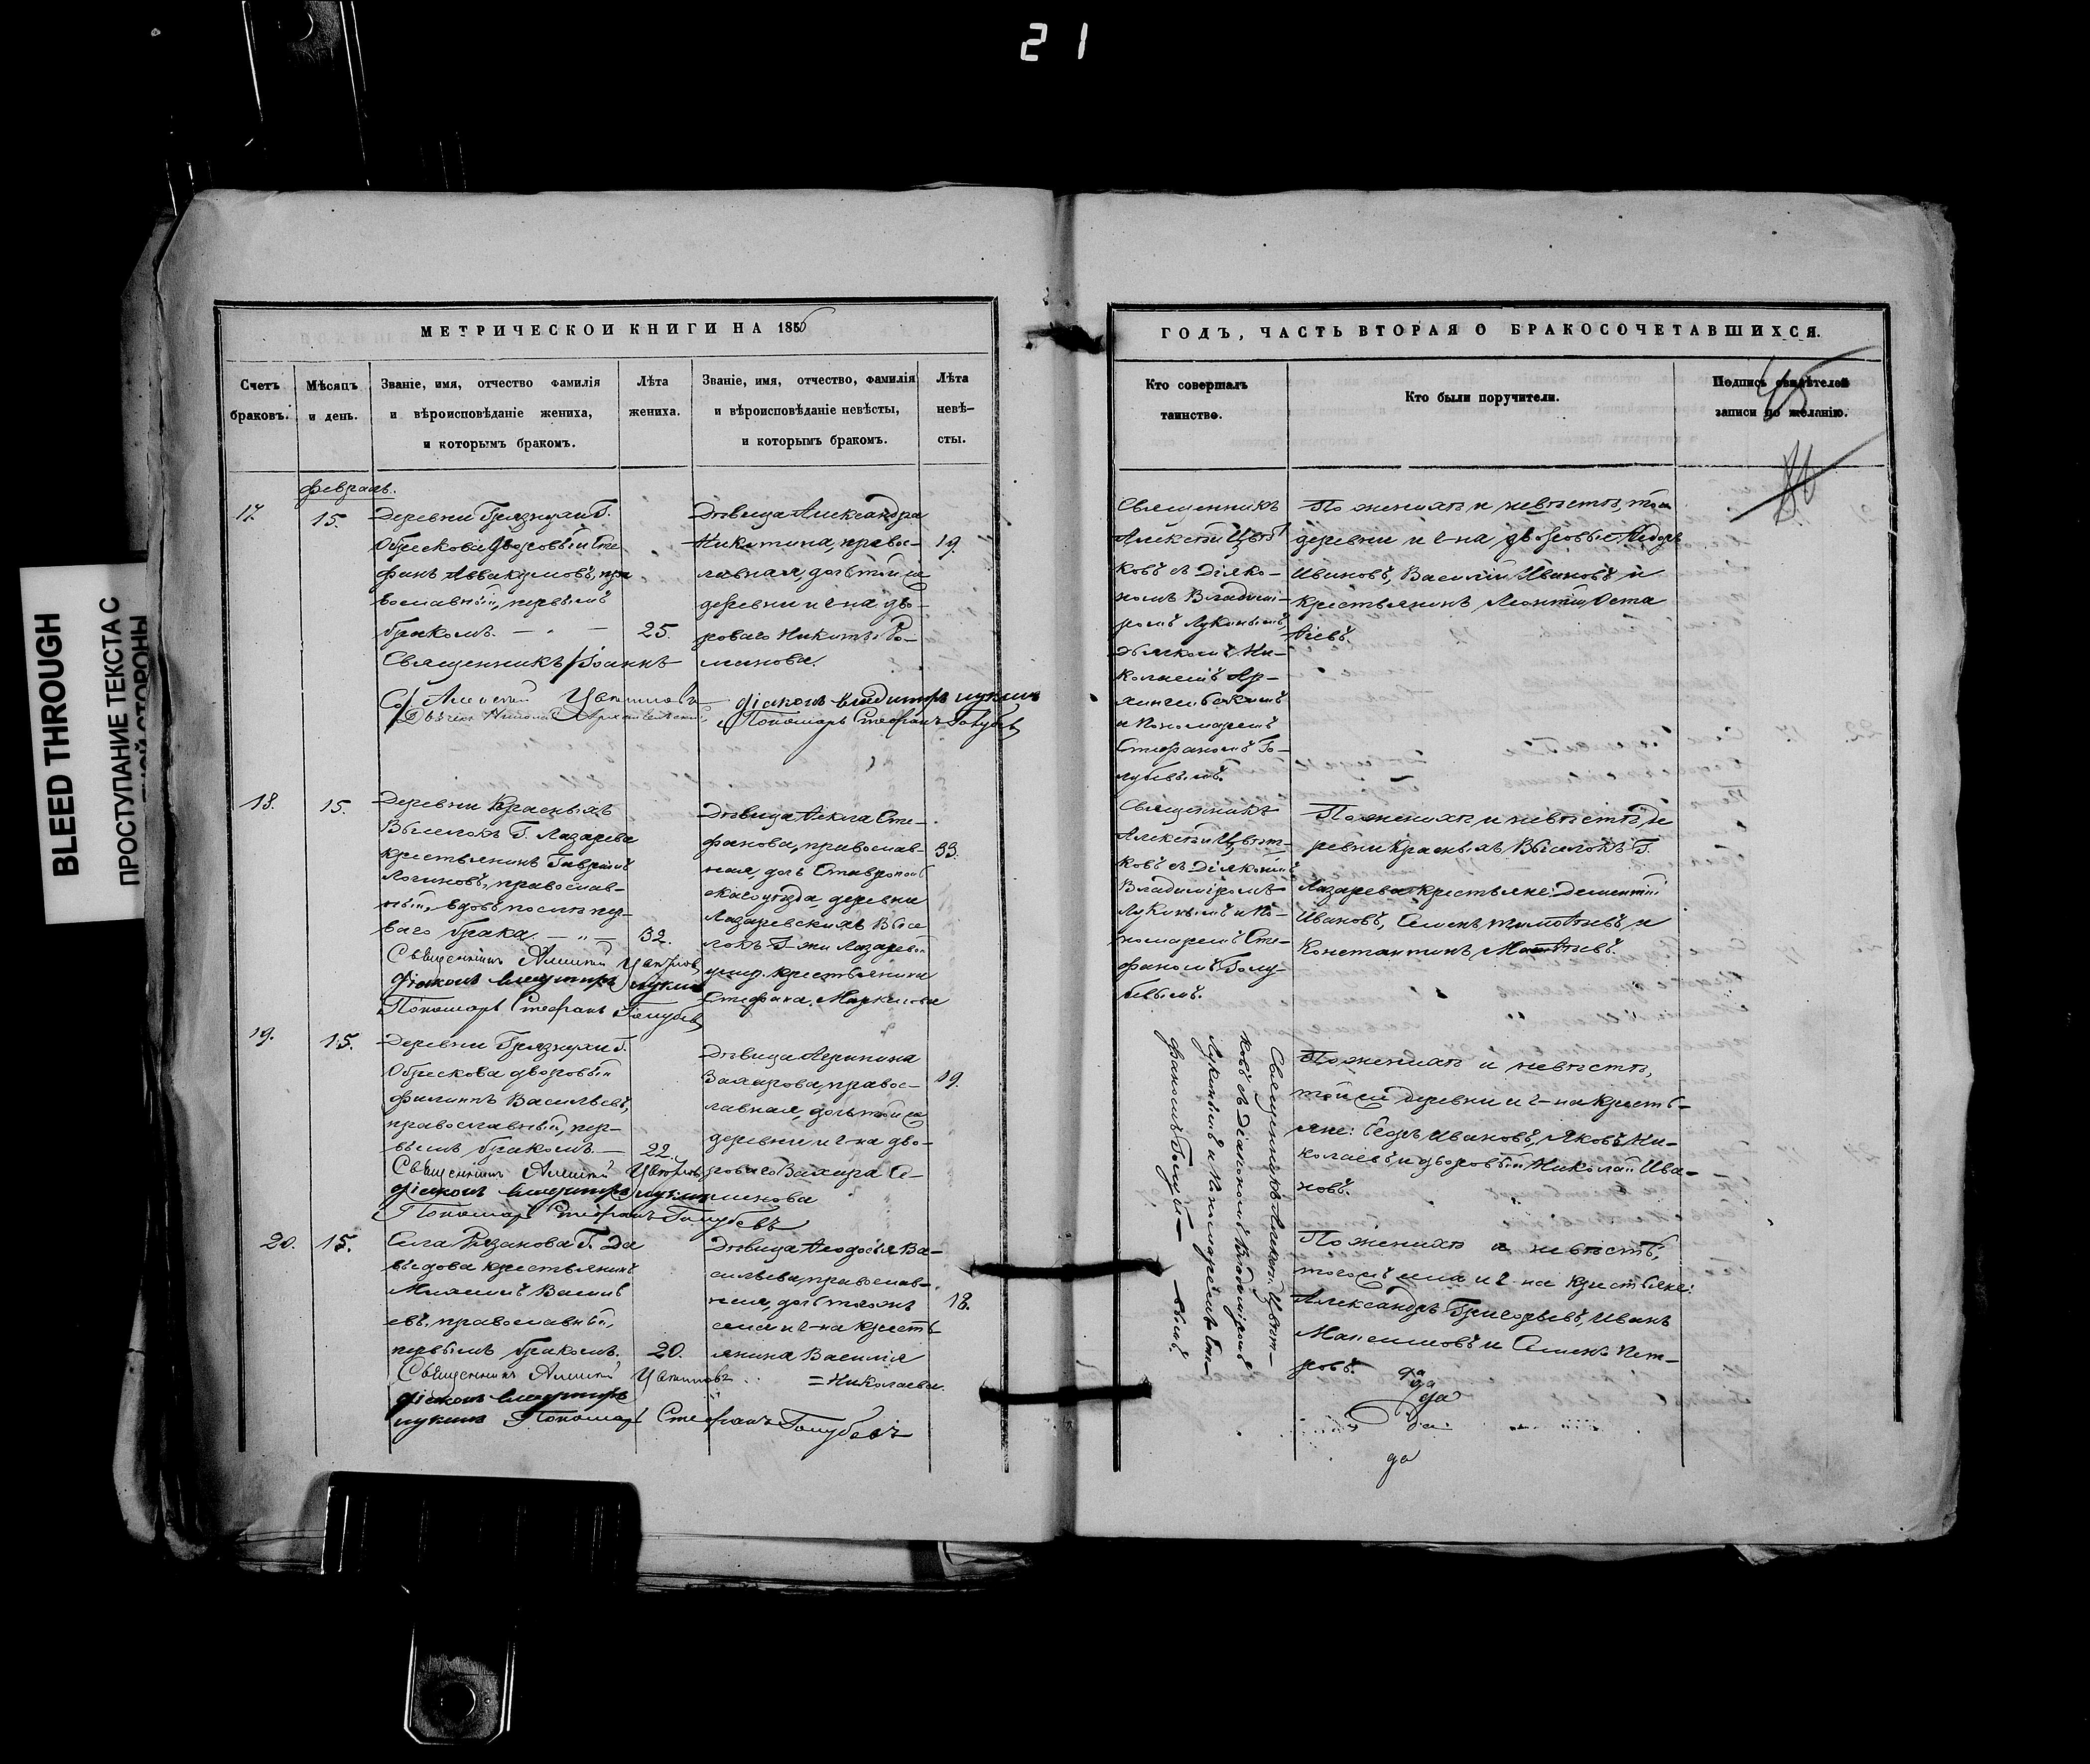 21
BLEED THROUGH
ПРОСТУПАНИЕ ТЕКСТА С
МЕТРИЧЕСКОЙ КНИГИ НА 1856
Счетъ браковъ.
Мѣсяцъ и день.
Званіе, имя, отчество фамилія
и вѣроисповѣданіе жениха,
и которымъ бракомъ.
Лѣта жениха.
Званіе, имя, отчество, фамилія
и вѣроисповѣданіе невѣсты,
и которымъ бракомъ.
Лѣта невѣ-
сты.
февраль.
17.
15.
Деревни Грязнухи Г.
Обрескова дворовый Сте
фанъ Аввакумовъ, пра
вославный, первымъ
бракомъ.
25.
Священникъ Іоаннъ
Дѣвица Александра
Никитина, правос-
лавная, дочь той же
деревни и г-на дво-
роваго Никиты Ро-
манова.
19.
Алексій Цвѣтковъ
Діаконъ Владиміръ Лукинъ
Пономарь Стефанъ Голубевъ
18.
15.
Деревни Красныхъ
Выселокъ Г. Лазарева
крестьянинъ Гавріилъ
Логиновъ, православ-
ный, вдовъ послѣ пер-
ваго брака
32.
Священникъ Алексій Цвѣтковъ
Діаконъ Владиміръ Лукинъ
Пономарь Стефанъ Голубевъ
Дѣвица Ѳекла Сте-
фанова, православ-
ная, дочь Ставрополь
скаго уѣзда деревни
Лазаревскихъ Высе
локъ Г-жи Лазаревой
умер. крестьянина
Стефана Маркелова
33.
19.
15.
Деревни Грязнухи Г.
Обрескова дворовый
Филиппъ Васильевъ,
православный, пер-
вымъ бракомъ.
22.
Священникъ Алексій Цвѣтковъ
Діаконъ Владиміръ Лукинъ
Пономарь Стефанъ Голубевъ
Дѣвица
Захарова, правос-
лавная, дочь той же
деревни и г-на дво-
роваго Захара Се-
менова
19.
20.
15.
Села Рязанова Г. Да
выдова крестьянинъ
Васильевъ
евъ, православный,
первымъ бракомъ.
20.
Священникъ Алексій Цвѣтковъ
Діаконъ Владиміръ
Лукинъ Пономарь Стефанъ Голубевъ
Дѣвица Ѳеодосья Ва-
сильева, православ-
ная, дочь тогожъ
села и г-на кресть
янина Василія
=Николаева.
18.
ГОДЪ, ЧАСТЬ ВТОРАЯ О БРАКОСОЧЕТАВШИХСЯ.
Кто совершалъ
таинство.
Кто были поручители.
Подпись свидѣтелей
записи по желанію.
45
86
Священникъ
Алексѣй Цвѣт
ковъ съ Діако-
номъ Владимі-
ромъ Лукинымъ,
дьячкомъ Ни-
колаемъ Ар-
хангельскимъ
и Пономаремъ
Стефаномъ Го-
лубевымъ.
По женихѣ и невѣстѣ, той же
деревни и г-на дворовые Ѳедоръ
Ивановъ, Василій Ивановъ и
крестьянинъ Леонтій Оста
фіевъ.
Священникъ
Алексѣй Цвѣт-
ковъ съ Діакономъ
Владиміромъ
Лукинымъ и По-
номаремъ Сте-
фаномъ Голу-
бевымъ.
По женихѣ и невѣстѣ, де
ревни Красныхъ Выселокъ Г.
Лазарева крестьяне: Дементій
Ивановъ, Семенъ Тимоѳеевъ и
Константинъ Матѳеевъ.
Священникъ Алексѣй Цвѣт-
ковъ съ Діакономъ Владиміромъ
Лукинымъ и Пономаремъ Сте-
фаномъ Голубевымъ.
По женихѣ и невѣстѣ,
той же деревни и г-на кресть-
яне: Ѳедръ Ивановъ, Яковъ Ни-
колаевъ и дворовый Николай Ива-
новъ.
По женихѣ и невѣстѣ,
тогожъ села и г-на крестьяне:
Александръ Григорьевъ, Иванъ
Максимовъ и Семенъ Пет-
ровъ.
да
да
да
да
да